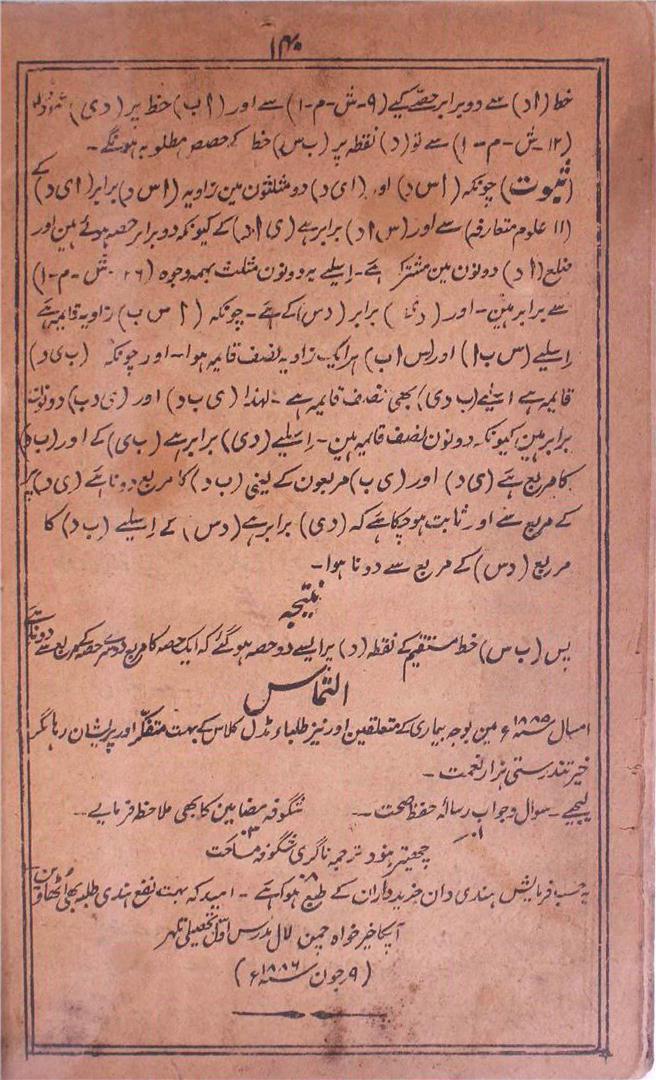 ۱۴۰
خط (اد) سے دو برابر حصے کیے (۹-ش-م-۱) سے اور (اب) خط پر (دی) عمود ڈالا
(۱۲-ش-م-۱) سے تو (د) نقطہ پر (ب س) خط کے حصص مطلوبہ ہونگے۔
(ثبوت) چونکہ (اس د) اور (ای د) دو مثلثون مین زاویہ (اس د) برابر (ای د) کے
(۱۱ علوم متعارفہ) سے اور (س اد) برابر ہے (ی اد) کے کیونکہ دو برابر حصہ ہوئے ہین اور
ضلع (اد) دونون مین مشترک ہے۔ اسلیے یہ دونون مثلث بہمہ وجوہ (۲۶-ش-م-۱)
سے برابر ہین۔ اور (دی) برابر (دس) کے ہے۔ چونکہ (اس ب) زاویہ قائمہ ہے
اسلیے (س ب ا) اور (س اب) ہر ایک زاویہ نصف قائمہ ہوا۔ اور چونکہ (ب ی د)
قائمہ ہے اسلئے (ب دی) بھی نصف قائمہ ہے۔ لہذا (ی ب د) اور (ی دب) دونون
برابر ہین کیونکہ دونون نصف قائمہ ہین۔ اسلیے (دی) برابر ہے (ب ی) کے اور (ب د)
کا مربع ہے (ی د) اور (ی ب) مربعون کے یعنی (ب د) کا مربع دونا ہے (ی د)
کے مربع سے اور ثابت ہو چکا ہے کہ (دی) برابر ہے (دس) کے اسلیے (ب د) کا
مربع (دس) کے مربع سے دونا ہوا۔
نتیجہ
پس (ب س) خط مستقیم کے نقطہ (د) پر ایسے دو حصہ ہو گئے کہ ایک حصہ کا مربع دوسرے حصہ کے مربع سے دونا ہے
التماس
امسال سنہ ۱۸۸۵ء مین بوجہ بیماری کے متعلقین اور نیز طلباء مڈل کلاس کے بہت متفکر اور پریشان رہا مگر
خیر تندرستی ہزار نعمت۔
لیجیے۔ سوال و جواب رسالہ حفظ صحت۔ شگوفہ مضامین کا بھی ملاحظہ فرمایے۔
چھیتر بنود ترجمہ ناگری شگوفہ مساحت
یہ حسب فرمایش ہندی دان خریداران کے طبع ہو کر ہے۔ امید کہ بہت نفع ہندی طلبہ بھی اُٹھاوین
آپکا خیر خواہ چمن لال مدرس اول تحصیلی تلہر
(۹ جون سنہ ۱۸۸۶ء)